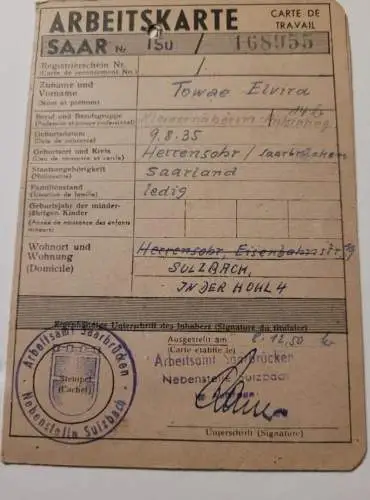 ARBEITSKARTE
CARTE DE
TRAVAIL
SAAR Nr 1SU / 168955
Registrierschein Nr.
(Carte de recensement No.)
Zuname und
Vorname
(Nom et prénom)
Towae Elvira
Beruf und Berufsgruppe
(Profession et groupe professionnel)
Geburtsdatum
(Date de naissance)
9.8.35
Geburtsort und Kreis
(Lieu de naissance et cercle)
Herrensohr / Saarbrücken
Staatsangehörigkeit
(Nationalité)
Saarland
Familienstand
(Situation de famille)
ledig
Geburtsjahr der minder-
jährigen Kinder
(Année de naissance des enfants
mineurs)
Wohnort und
Wohnung
(Domicile)
Herrensohr, Eisenbahnstr.
SULZBACH,
IN DER HOHL 4
Eigenhändige Unterschrift des Inhabers (Signature du titulaire)
Ausgestellt am
(Carte établie le)
8.12.50
Arbeitsamt Saarbrücken
Nebenstelle Sulzbach
Arbeitsamt Saarbrücken
Nebenstelle Sulzbach
Stempel
(Cachet)
Unterschrift (Signature)